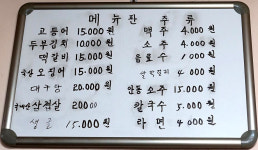 메뉴판 주류
고등어 15.000원 맥주 4.000원
두부김치 10000원 소주 4.000원
떡갈비 15.000원 음료수 1000원
오징어 15.000원 4000원
대구탕 20.000원 안동소주 15.000원
삼겹살 20000 칼국수 5.000원
생굴 15.000원 라면 4000원